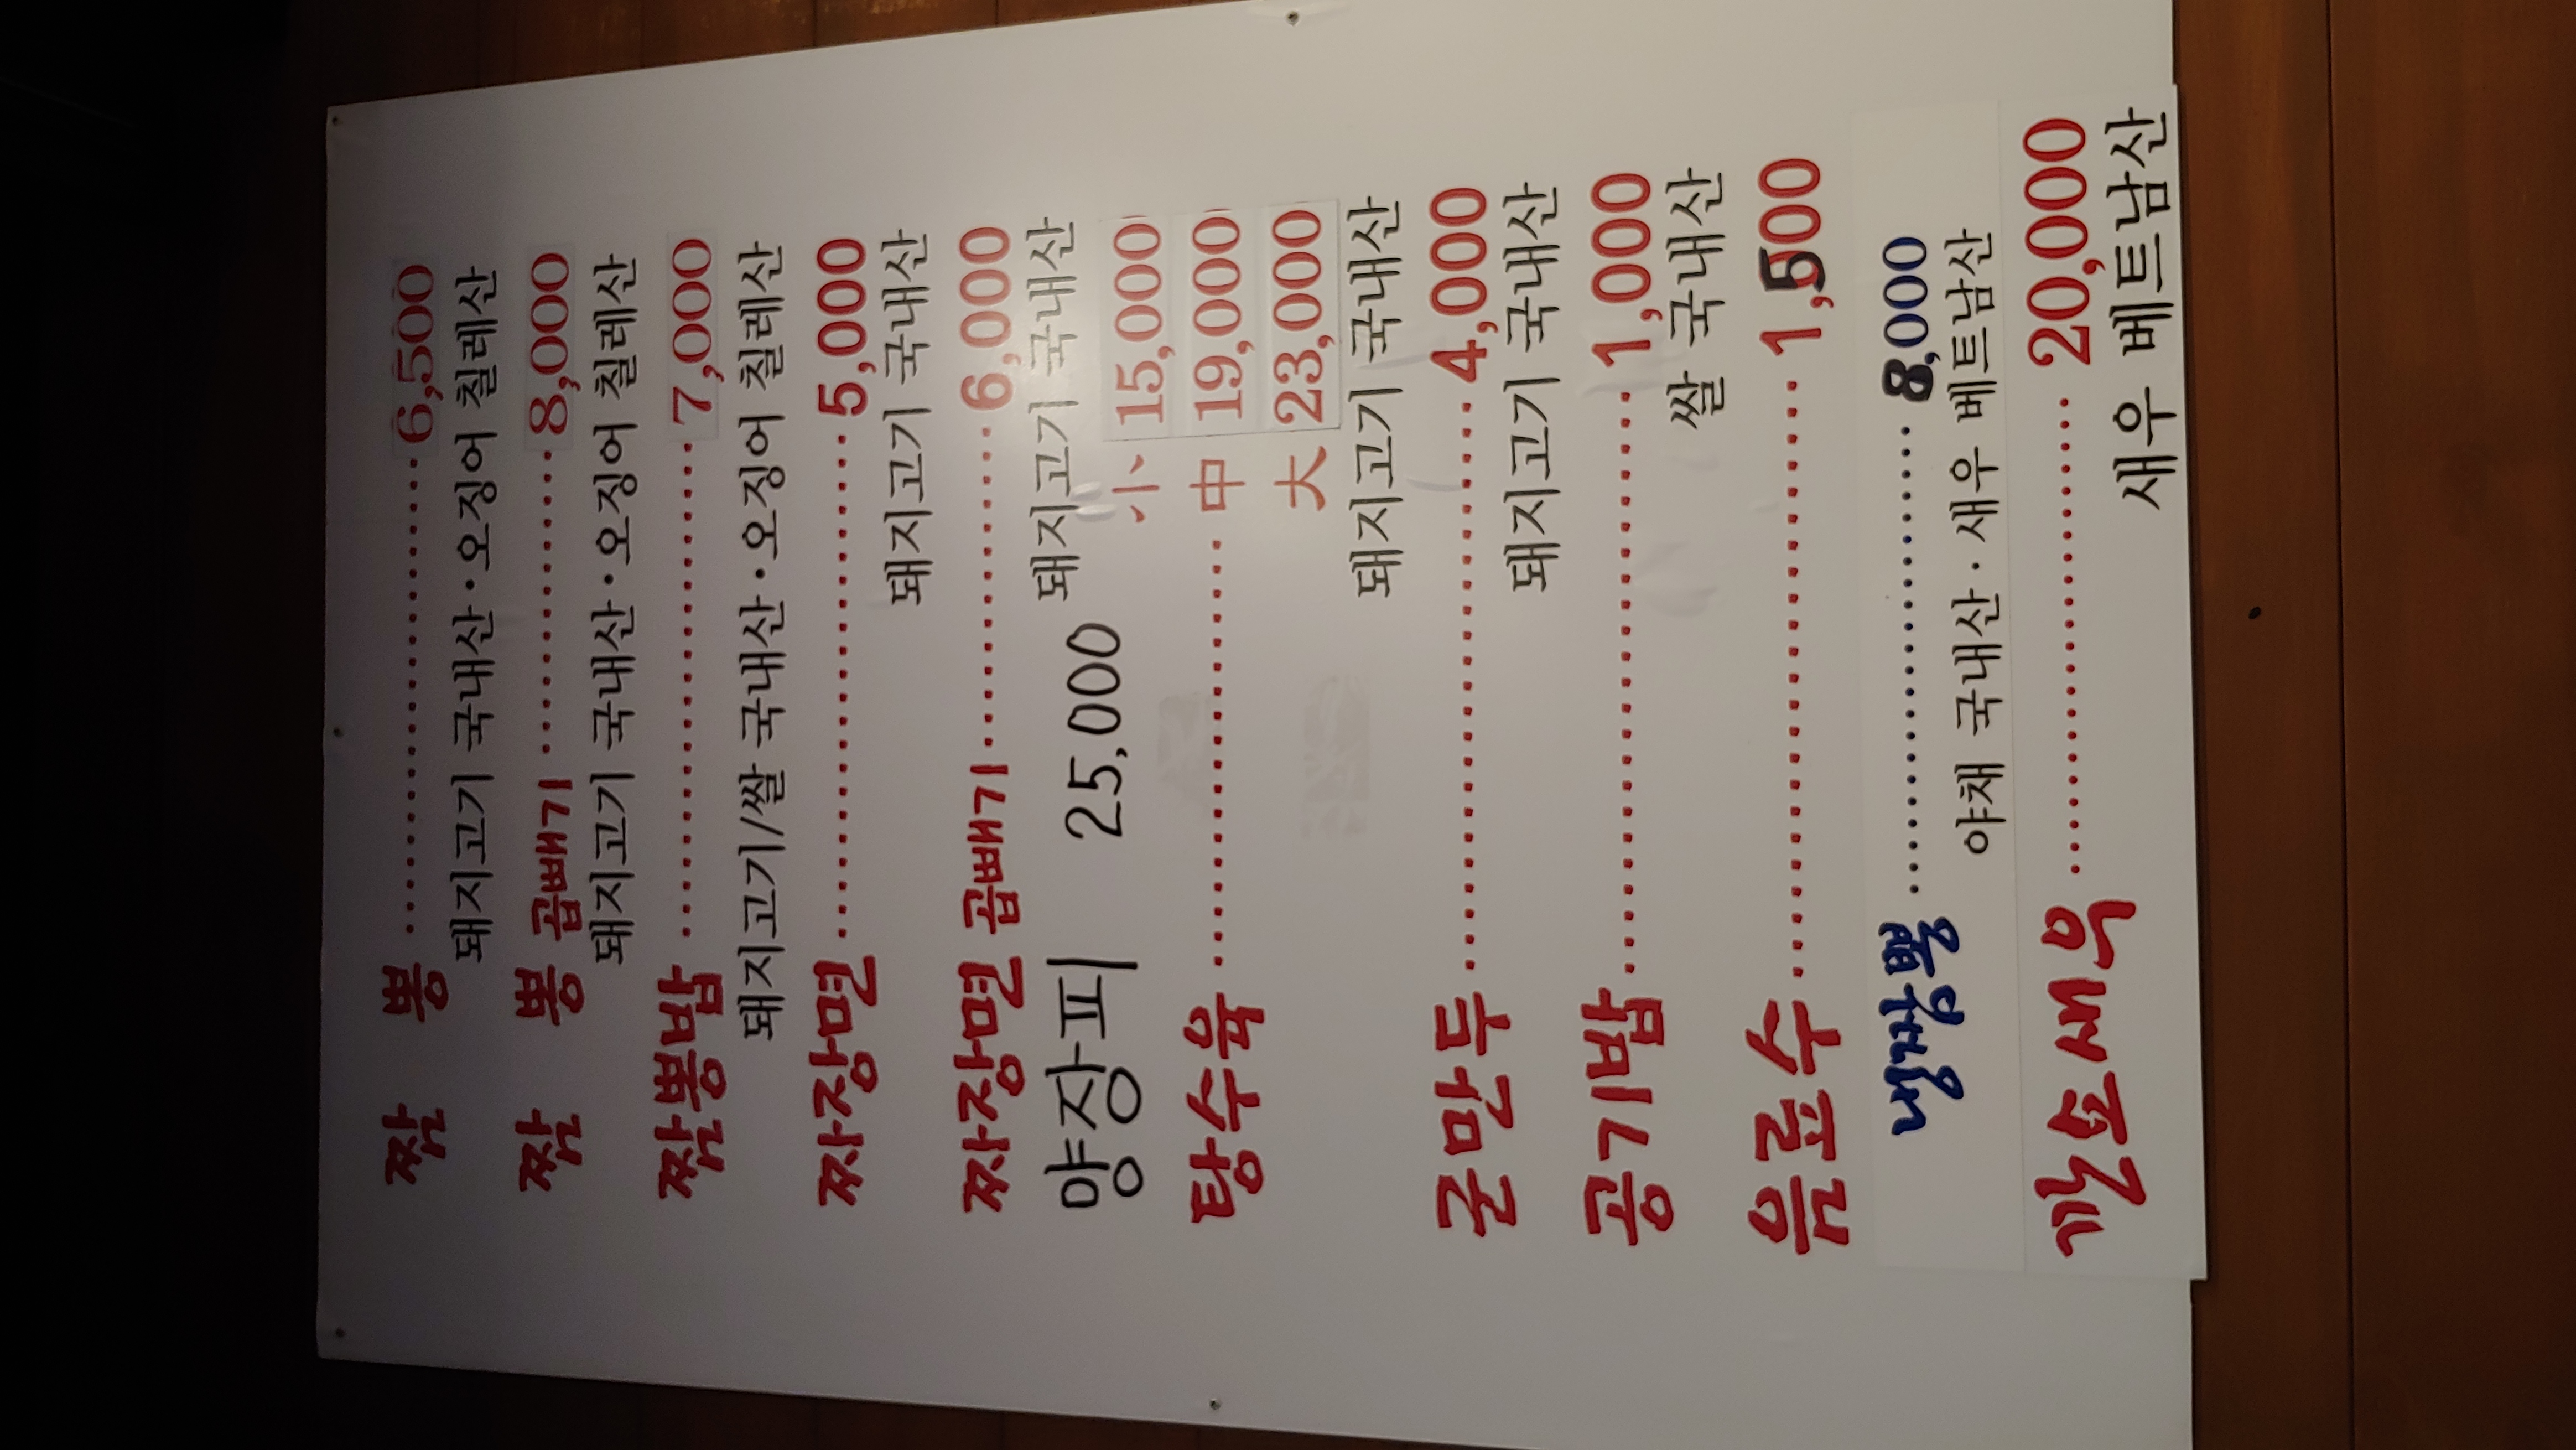 짬 뽕 ........................ 6,500
돼지고기 국내산·오징어 칠레산
짬 뽕 곱빼기 ................ 8,000
돼지고기 국내산·오징어 칠레산
짬뽕밥 ........................ 7,000
돼지고기/쌀 국내산·오징어 칠레산
짜장면 ........................ 5,000
돼지고기 국내산
짜장면 곱빼기 ................ 6,000
돼지고기 국내산
양장피 25,000
小 15,000
탕수육 .................... 中 19,000
大 23,000
돼지고기 국내산
군만두 ........................ 4,000
돼지고기 국내산
공기밥 ........................ 1,000
쌀 국내산
음료수 ........................ 1,500
........................ 8,000
야채 국내산·새우 베트남산
깐쇼새우 ........................ 20,000
새우 베트남산